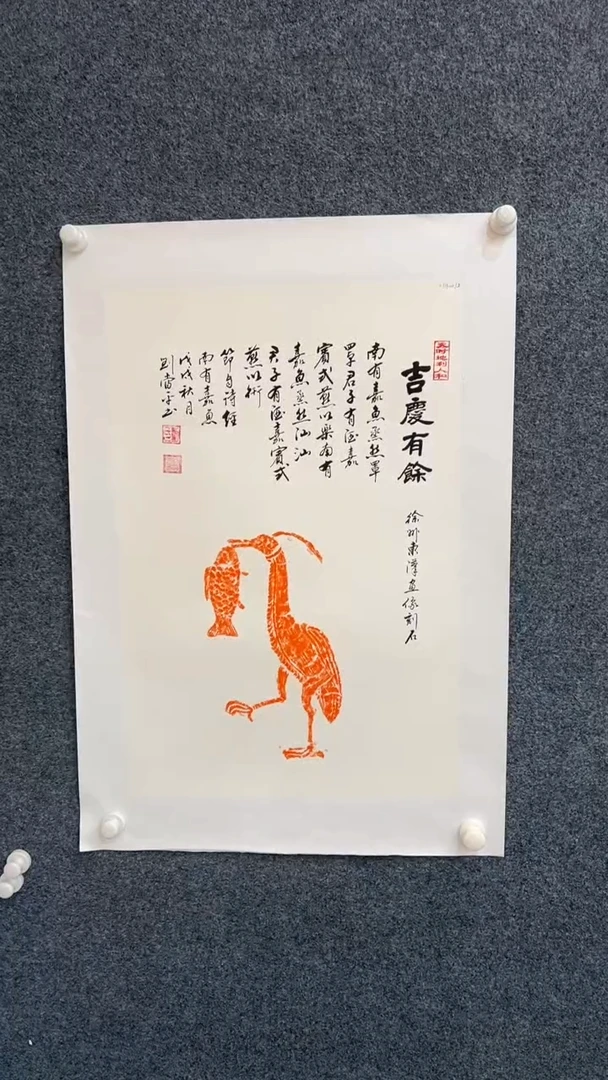 天时地利人和
吉慶有餘
徐州東漢画像刻石
南有嘉魚烝然罩
罩君子有酒嘉
賓式燕以樂南有
嘉魚烝然汕汕
君子有酒嘉賓式
燕以衎
節自詩經
南有嘉魚
戊戌秋月